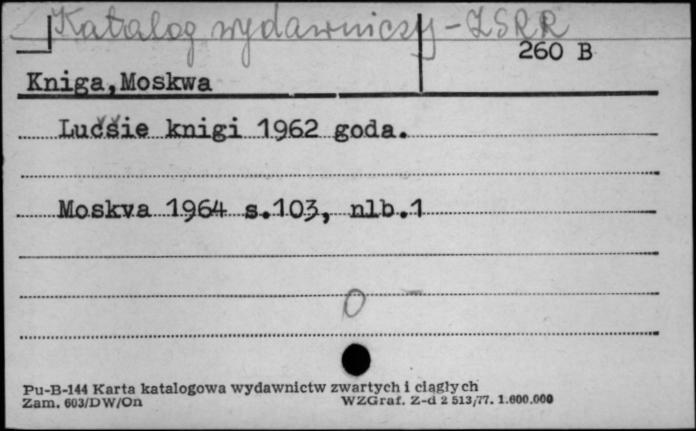 Katalog wydawniczy - ZSRR
260 B
Kniga,Moskwa
Lučšie knigi 1962 goda.
Moskva 1964 s.103, nlb.1
O
Pu-B-144 Karta katalogowa wydawnictw zwartych i ciągłych
Zam. 603/DW/On WZGraf. Z-d 2 513/77. 1.600.000